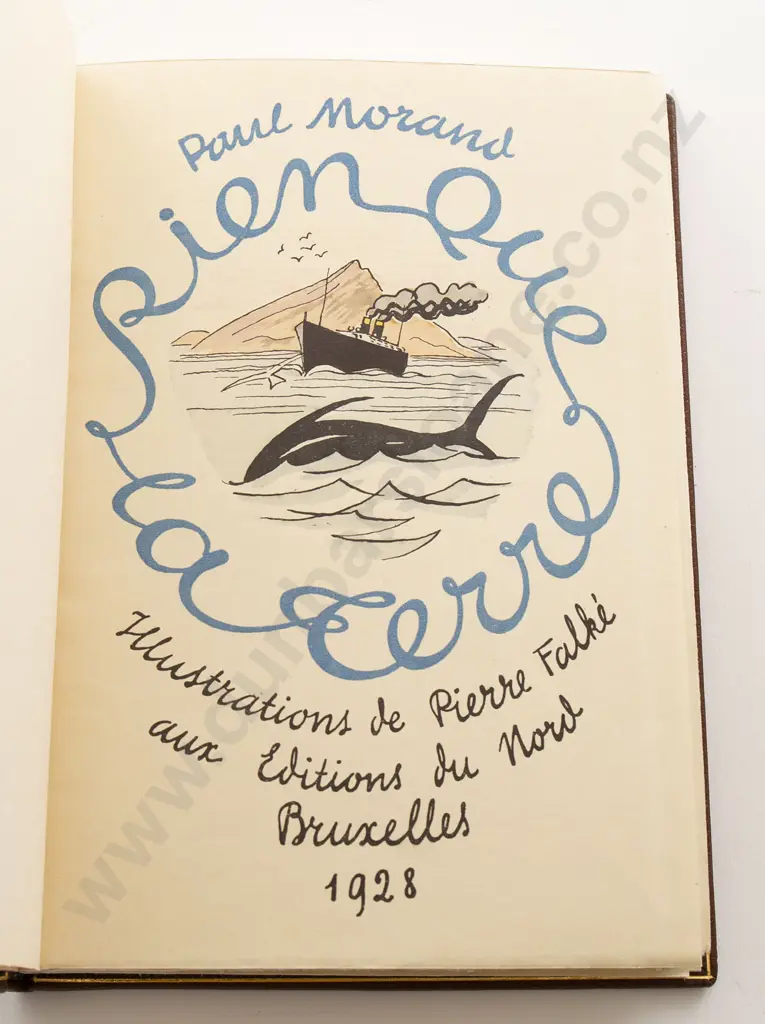 Paul Morand
Rien Que
la Terre
Illustrations de Pierre Falké
aux Editions du Nord
Bruxelles
1928